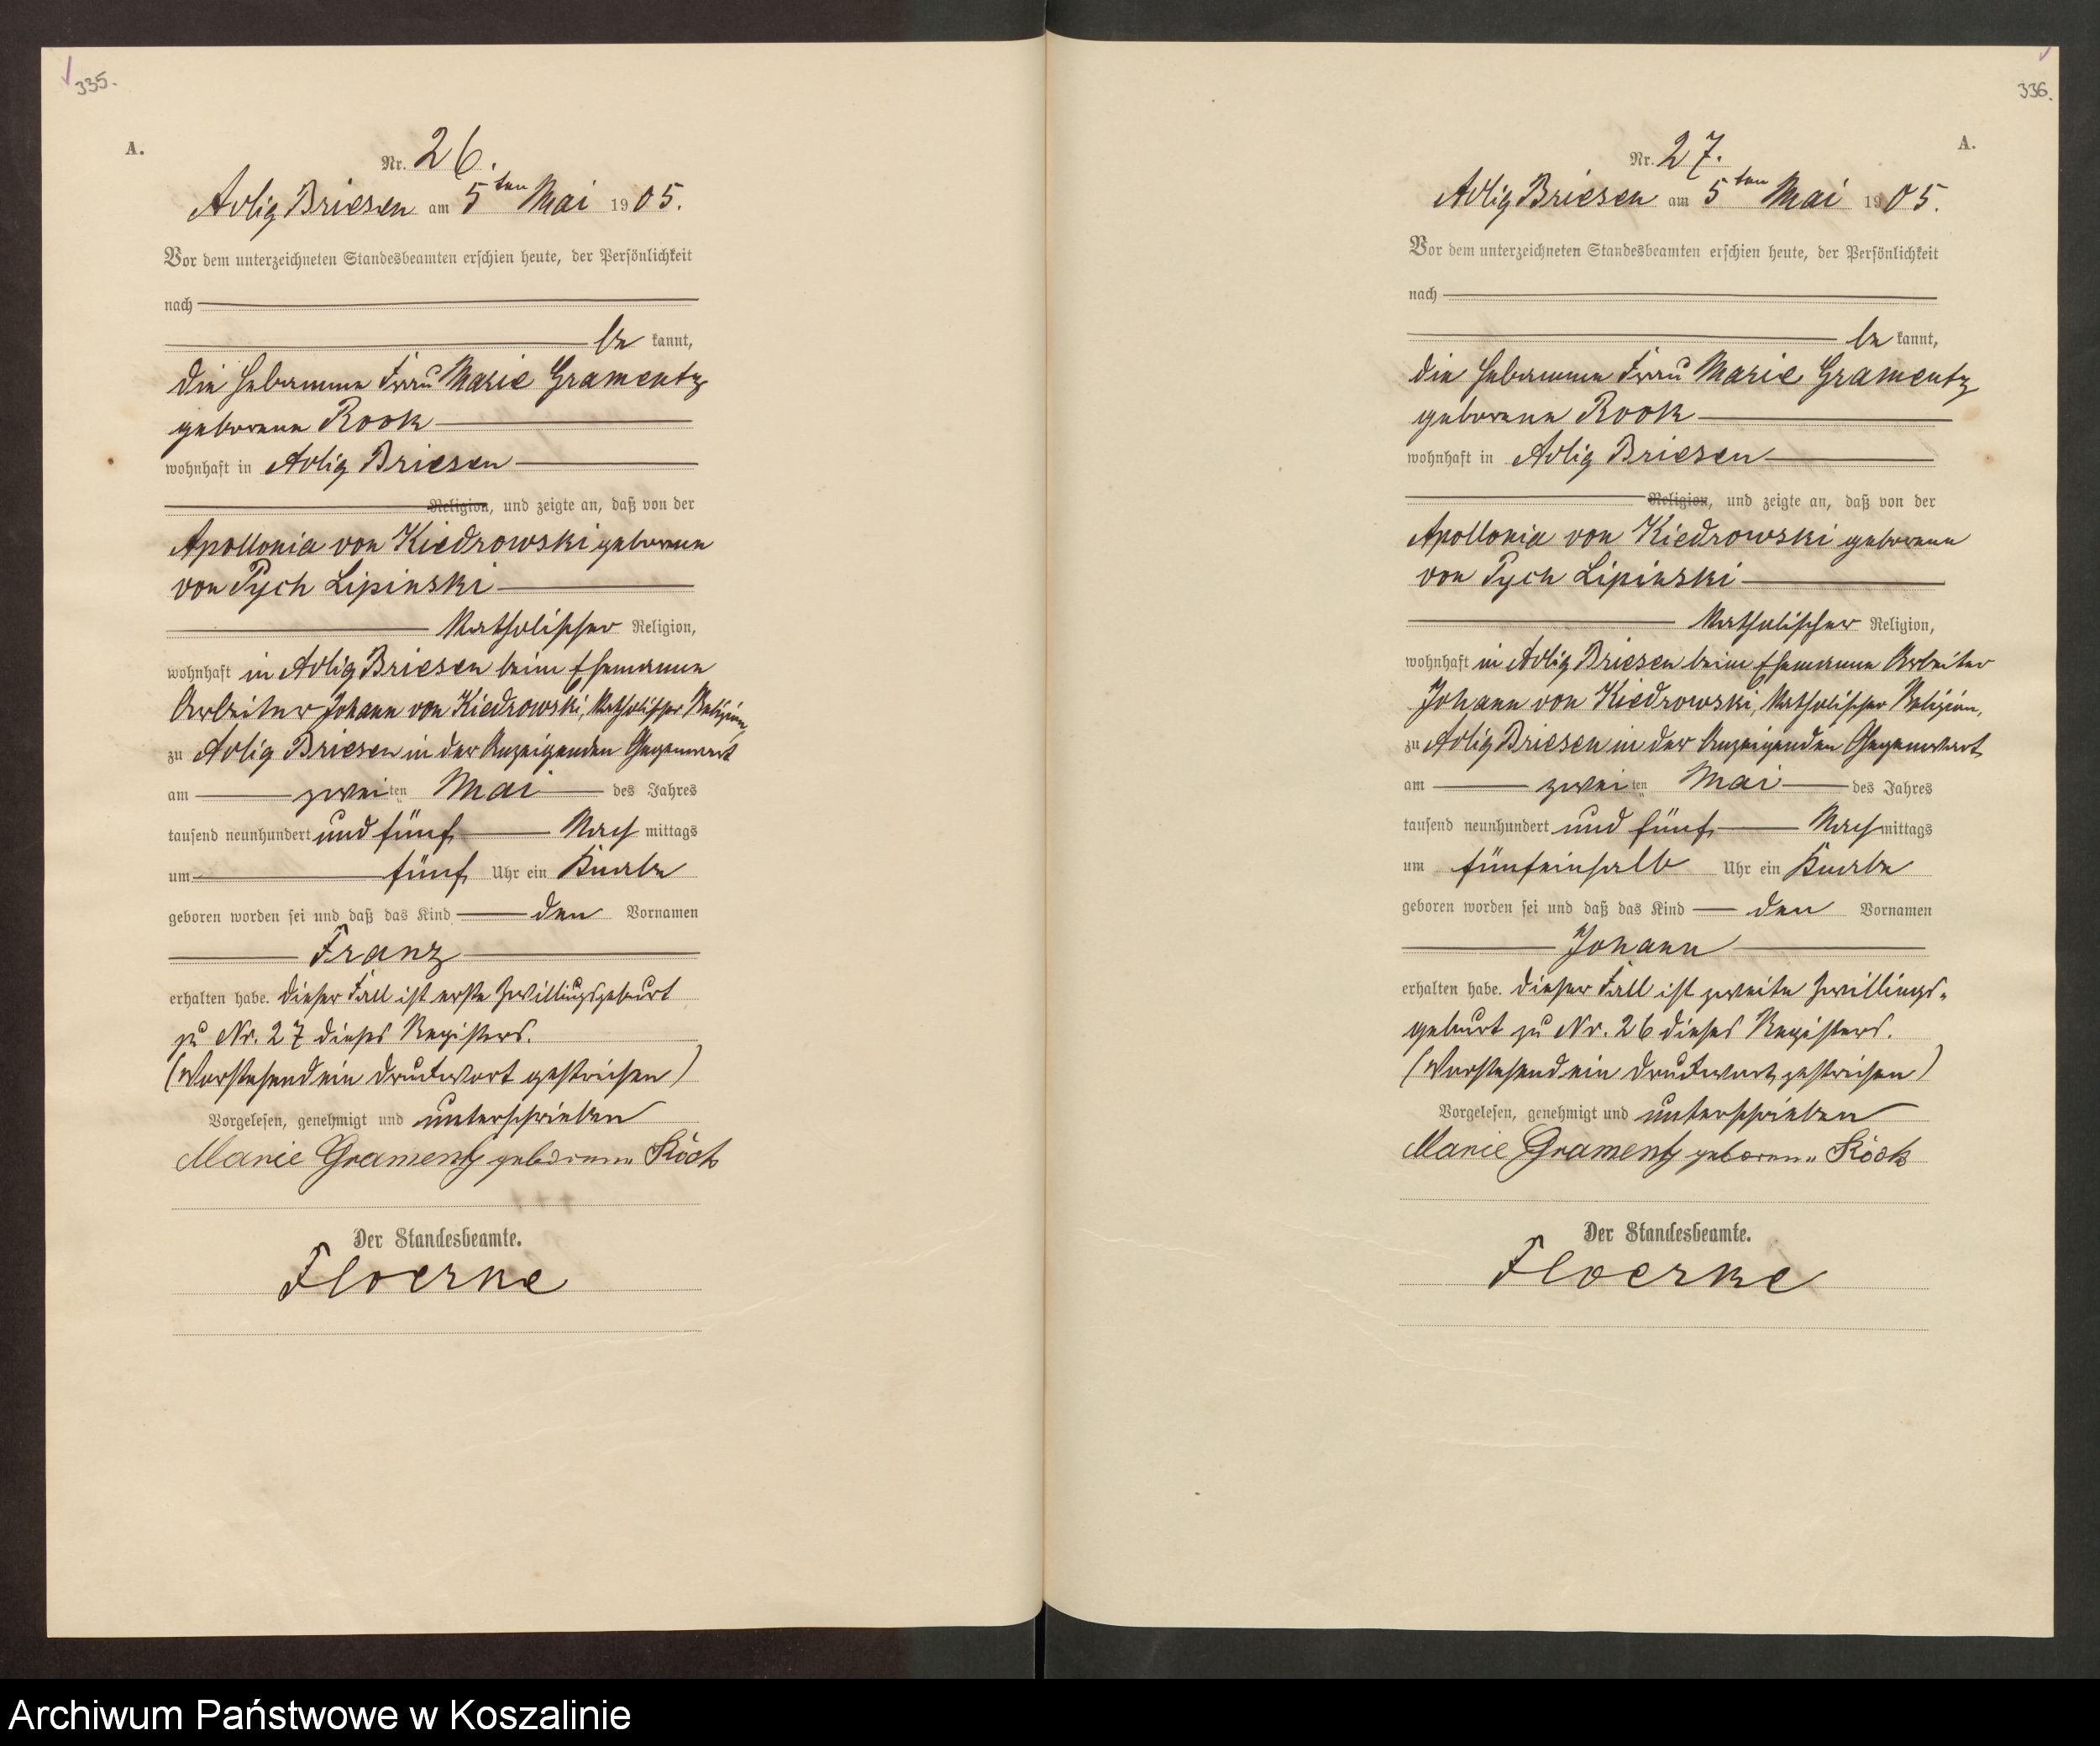 335.
A.
Nr. 26.
Adlig Briesen am 5ten Mai 1905.
Vor dem unterzeichneten Standesbeamten erschien heute, der Persönlichkeit
nach
be kannt,
die Hebamme Frau Marie Gramentz
geborene Rook
wohnhaft in Adlig Briesen
Religion, und zeigte an, daß von der
Apollonia von Kiedrowski geborene
von Pych Lipinski
katholischer Religion,
wohnhaft in Adlig Briesen beim Ehemanne
Arbeiter Johann von Kiedrowski, katholischer Religion,
zu Adlig Briesen in der Anzeigenden Gegenwart
am zwei ten Mai des Jahres
tausend neunhundert und fünf Nach mittags
um fünf Uhr ein Knabe
geboren worden sei und daß das Kind den Vornamen
Franz
erhalten habe. Dieser Fall ist erste Zwillingsgeburt
zu Nr. 27 dieses Registers.
(Vorstehend ein Druckwort gestrichen)
Vorgelesen, genehmigt und unterschrieben
Marie Gramentz geborene
Der Standesbeamte.
Floerke
336.
A.
Nr. 27.
Adlig Briesen am 5ten Mai 1905.
Vor dem unterzeichneten Standesbeamten erschien heute, der Persönlichkeit
nach
be kannt,
die Hebamme Frau Marie Gramentz
geborene Rook
wohnhaft in Adlig Briesen
Religion, und zeigte an, daß von der
Apollonia von Kiedrowski geborene
von Pych Lipinski
katholischer Religion,
wohnhaft in Adlig Briesen beim Ehemanne Arbeiter
Johann von Kiedrowski, katholischer Religion,
zu Adlig Briesen in der Anzeigenden Gegenwart
am zwei ten Mai des Jahres
tausend neunhundert und fünf Nach mittags
um fünfeinhalb Uhr ein Knabe
geboren worden sei und daß das Kind den Vornamen
Johann
erhalten habe. Dieser Fall ist zweite Zwillings-
geburt zu Nr. 26 dieses Registers.
(Vorstehend ein Druckwort gestrichen)
Vorgelesen, genehmigt und unterschrieben
Marie Gramentz geborene
Der Standesbeamte.
Floerke
Archiwum Państwowe w Koszalinie